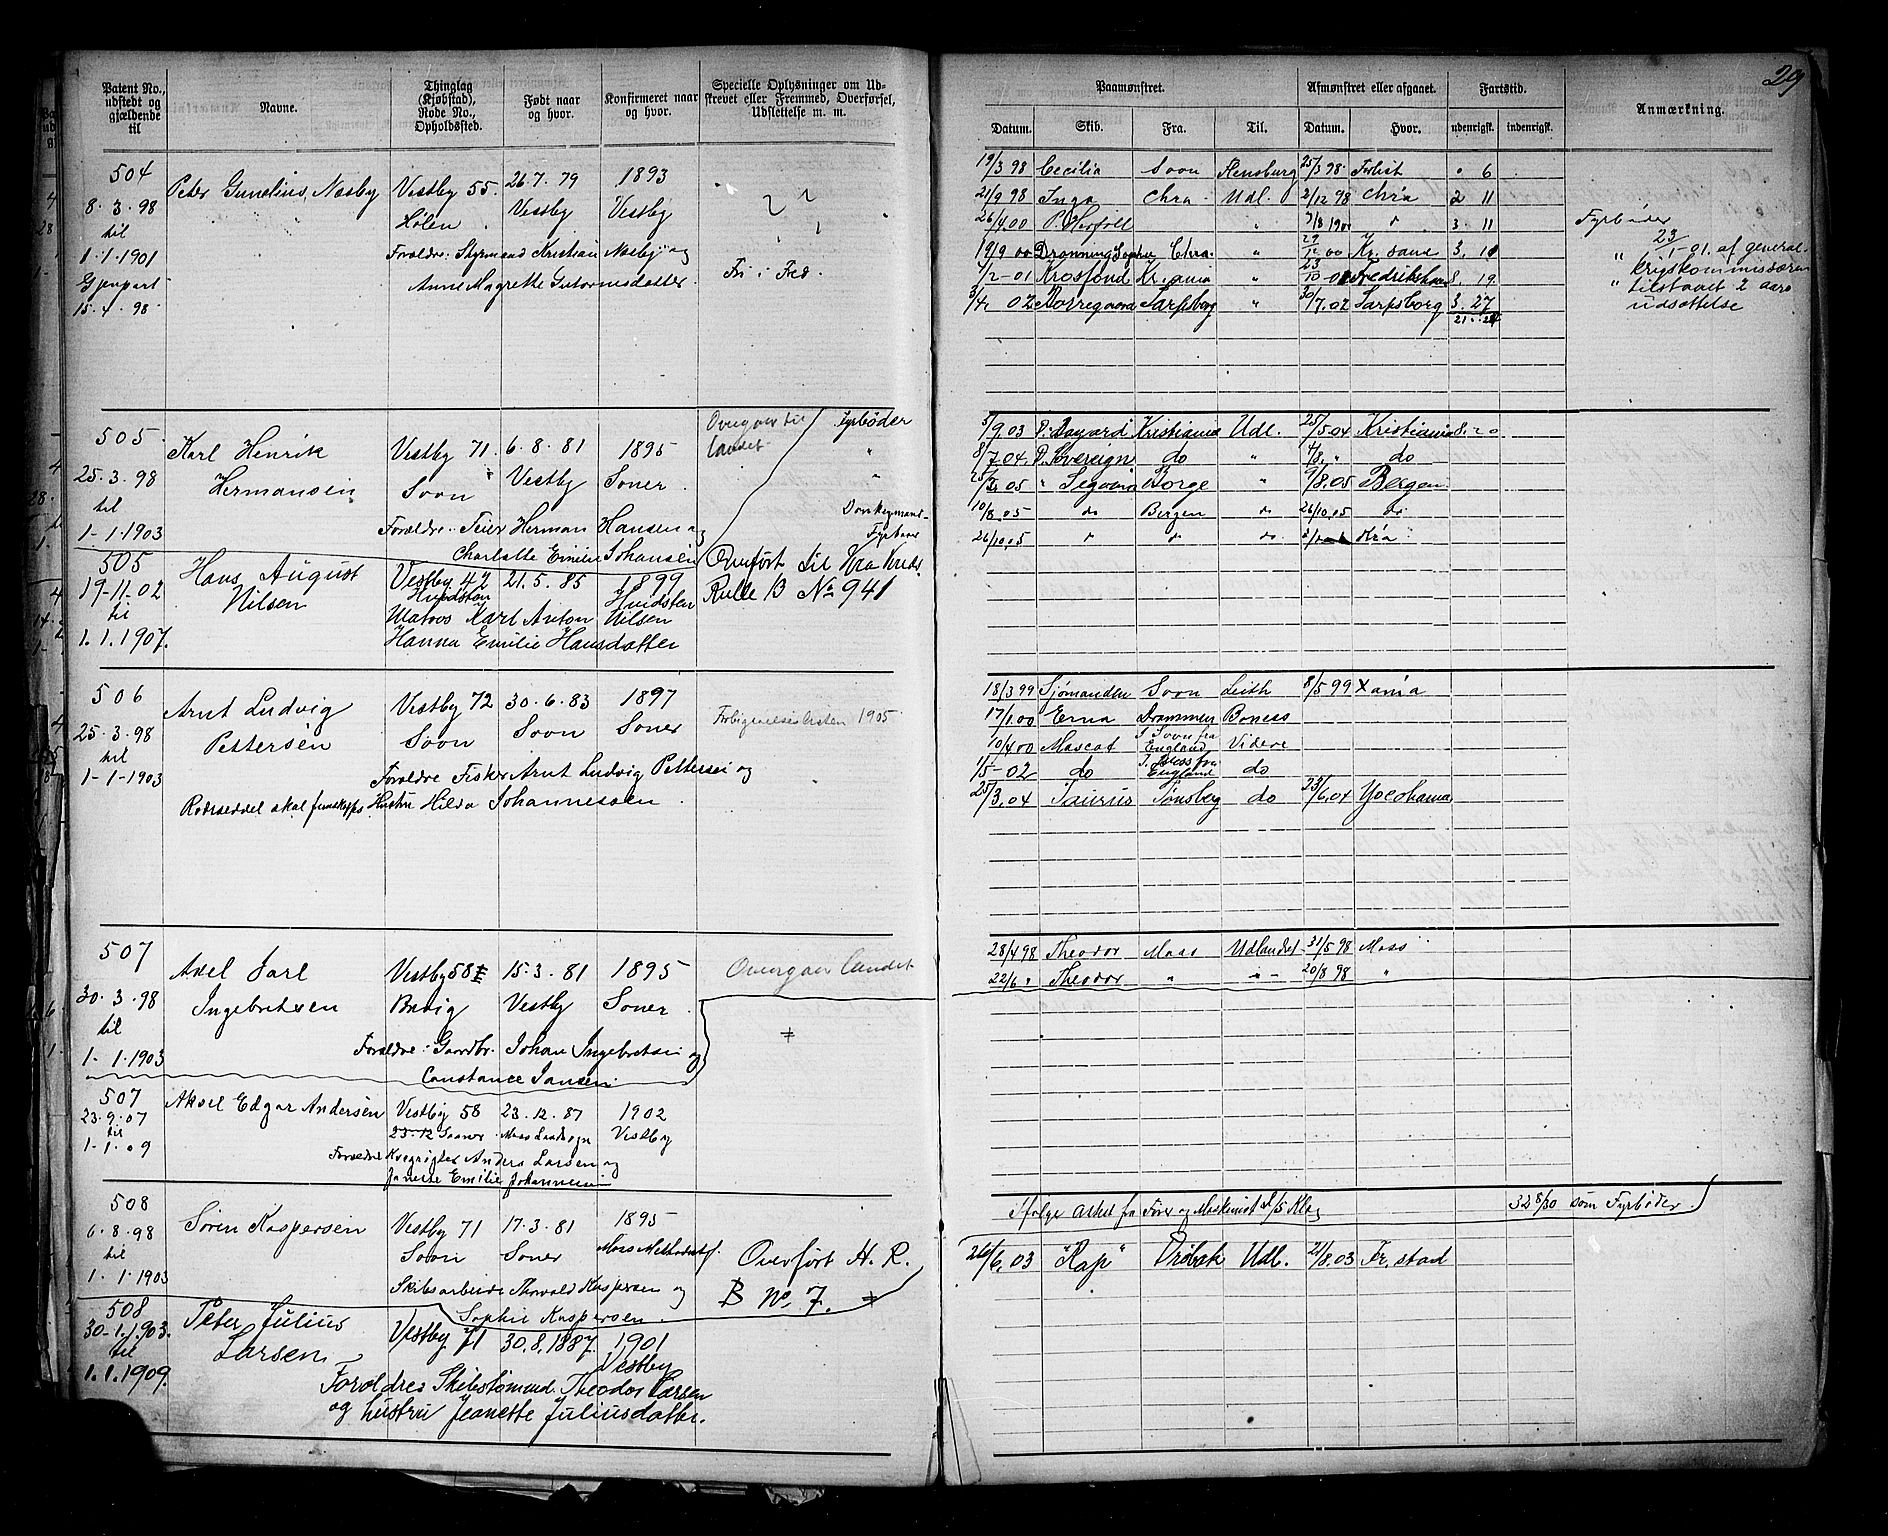 29
Patent No., udstedt og gjældende til
Navne.
Thinglag (Kjøbstad), Rode No., Opholdssted.
Født naar og hvor.
Konfirmeret naar og hvor.
Specielle Oplysninger om Udstrevet eller Fremmed, Overførsel, Udslettelse m. m.
Paamønstret.
Afmønstret eller afgaaet.
Fartstid.
Anmærkning.
Datum. Skib. Fra. Til. Datum. Hvor. udenrigsk. indenrigsk.
504
8-3-98
til
1-1-1901
15-4-98
Peter Gunelius Næsby
Vestby 55. 26-7.79 1893
Hølen Vestby Vestby
Forældre: Styrmand Kristian Næsby og
Anne Magrethe Guttormsdatter
19/3 98 Cecilia Soon Flensburg 25/3 98 Forlist " 6
21/9 98 Inga Chra. Udl. 2/12 98 Chra 2 11
26/4 00 " 3. 11
19/9 00 Dronning Sophie Chra. " 29/12 00 Kr. sand 3. 10
1/2-01 Krosfond Kr.ania " 8. 19
3/4 02 Sarpsborg " 30/7.02 Sarpsborg 3. 27
Fyrbøder
23/1-01 af general-
krigskommissæren
tilstaaet 2 aars
udsættelse
505.
25-3-98
til
1-1-1903
Karl Henrik
Hermansen
Vestby 71 6-8-81 1895
Soon Vestby Soner
Herman Hansen og
Charlotte Emilie Johansen
Overgaar til
landet
Fyrbøder
"
Donkeymand
Fyrbøder
5/9.03 D. Bayard Kristiania Udl. 25/5 04 Kristiania 8.20
8/7 04. D. Sovereign do " 4/8 " do
05 " Segovia Borge " 9/8.05 Bergen
10/8.05 do Bergen do 26/10.05 do
26/10.05 " " do Kra
505
19-11-02
til
1.1.1907.
Hans August
Nilsen
Vestby 42 21.5.85 1899
Hvidsten Hvidsten
Matros Karl Anton Nilsen
Hanna Emilie Hansdatter
Overført til Kra Kreds.
Rulle B No 941
506
25-3-98
til
1-1-1903
Arnt Ludvig
Pettersen
Vestby 72 30-6-83 1897
Soon Soon Soner
Forældre Fisker Arnt Ludvig Pettersen og
Hustru Hilda Johannessen
1905
18/3 99 Sjømanden Soon Leith 8/5 99 Xania
17/1.00 Erna Drammen Boness
10/4 00 Mascot I Soon fra England Videre
1/5-02 do England do
25/3.04 Taurus Tønsberg do 23/6.04 Yocohama
507
30.3.98
til
1-1-1903
Axel Jarl
Ingebretsen
Vestby 58 15-3.81 1895
Brevig Vestby Soner
Forældre: Gaardbr. Johan Ingebretsen og
Constance Jansen
Overgaar landet
28/4 98 Theodor Moss Udlandet 31/5 98 Moss
22/6 " Theodor " " 20/8 98 "
507
23.9.07
til
1-1.09
Aksel Edgar Andersen
Vestby 58 23-12.87 1902
Moss Landsogn Vestby
Forældre Anders Larsen og
Janette Emilie Johannesen
508
6-8-98
til
1-1-1903
Søren Kaspersen
Vestby 71 17-3.81 1895
Soon Soner Moss Methodistf.
Skibsarbeider Thorvald Kaspersen og
Sophie Kaspersen
Overført H. R.
B No. 7.
Ifølge attest fra Fører og Maskinist 32 8/30 som Fyrbøder
26/6.03 "Kap" Drøbak Udl. 21/8.03 Fr. stad
508
30-1.1903.
til
1.1.1909.
Peter Julius
Larsen
Vestby 71 30.8.1887. 1901
Vestby
Forældre Skibstømmd. Theodor Larsen
og hustru Jeanette Juliusdatter.